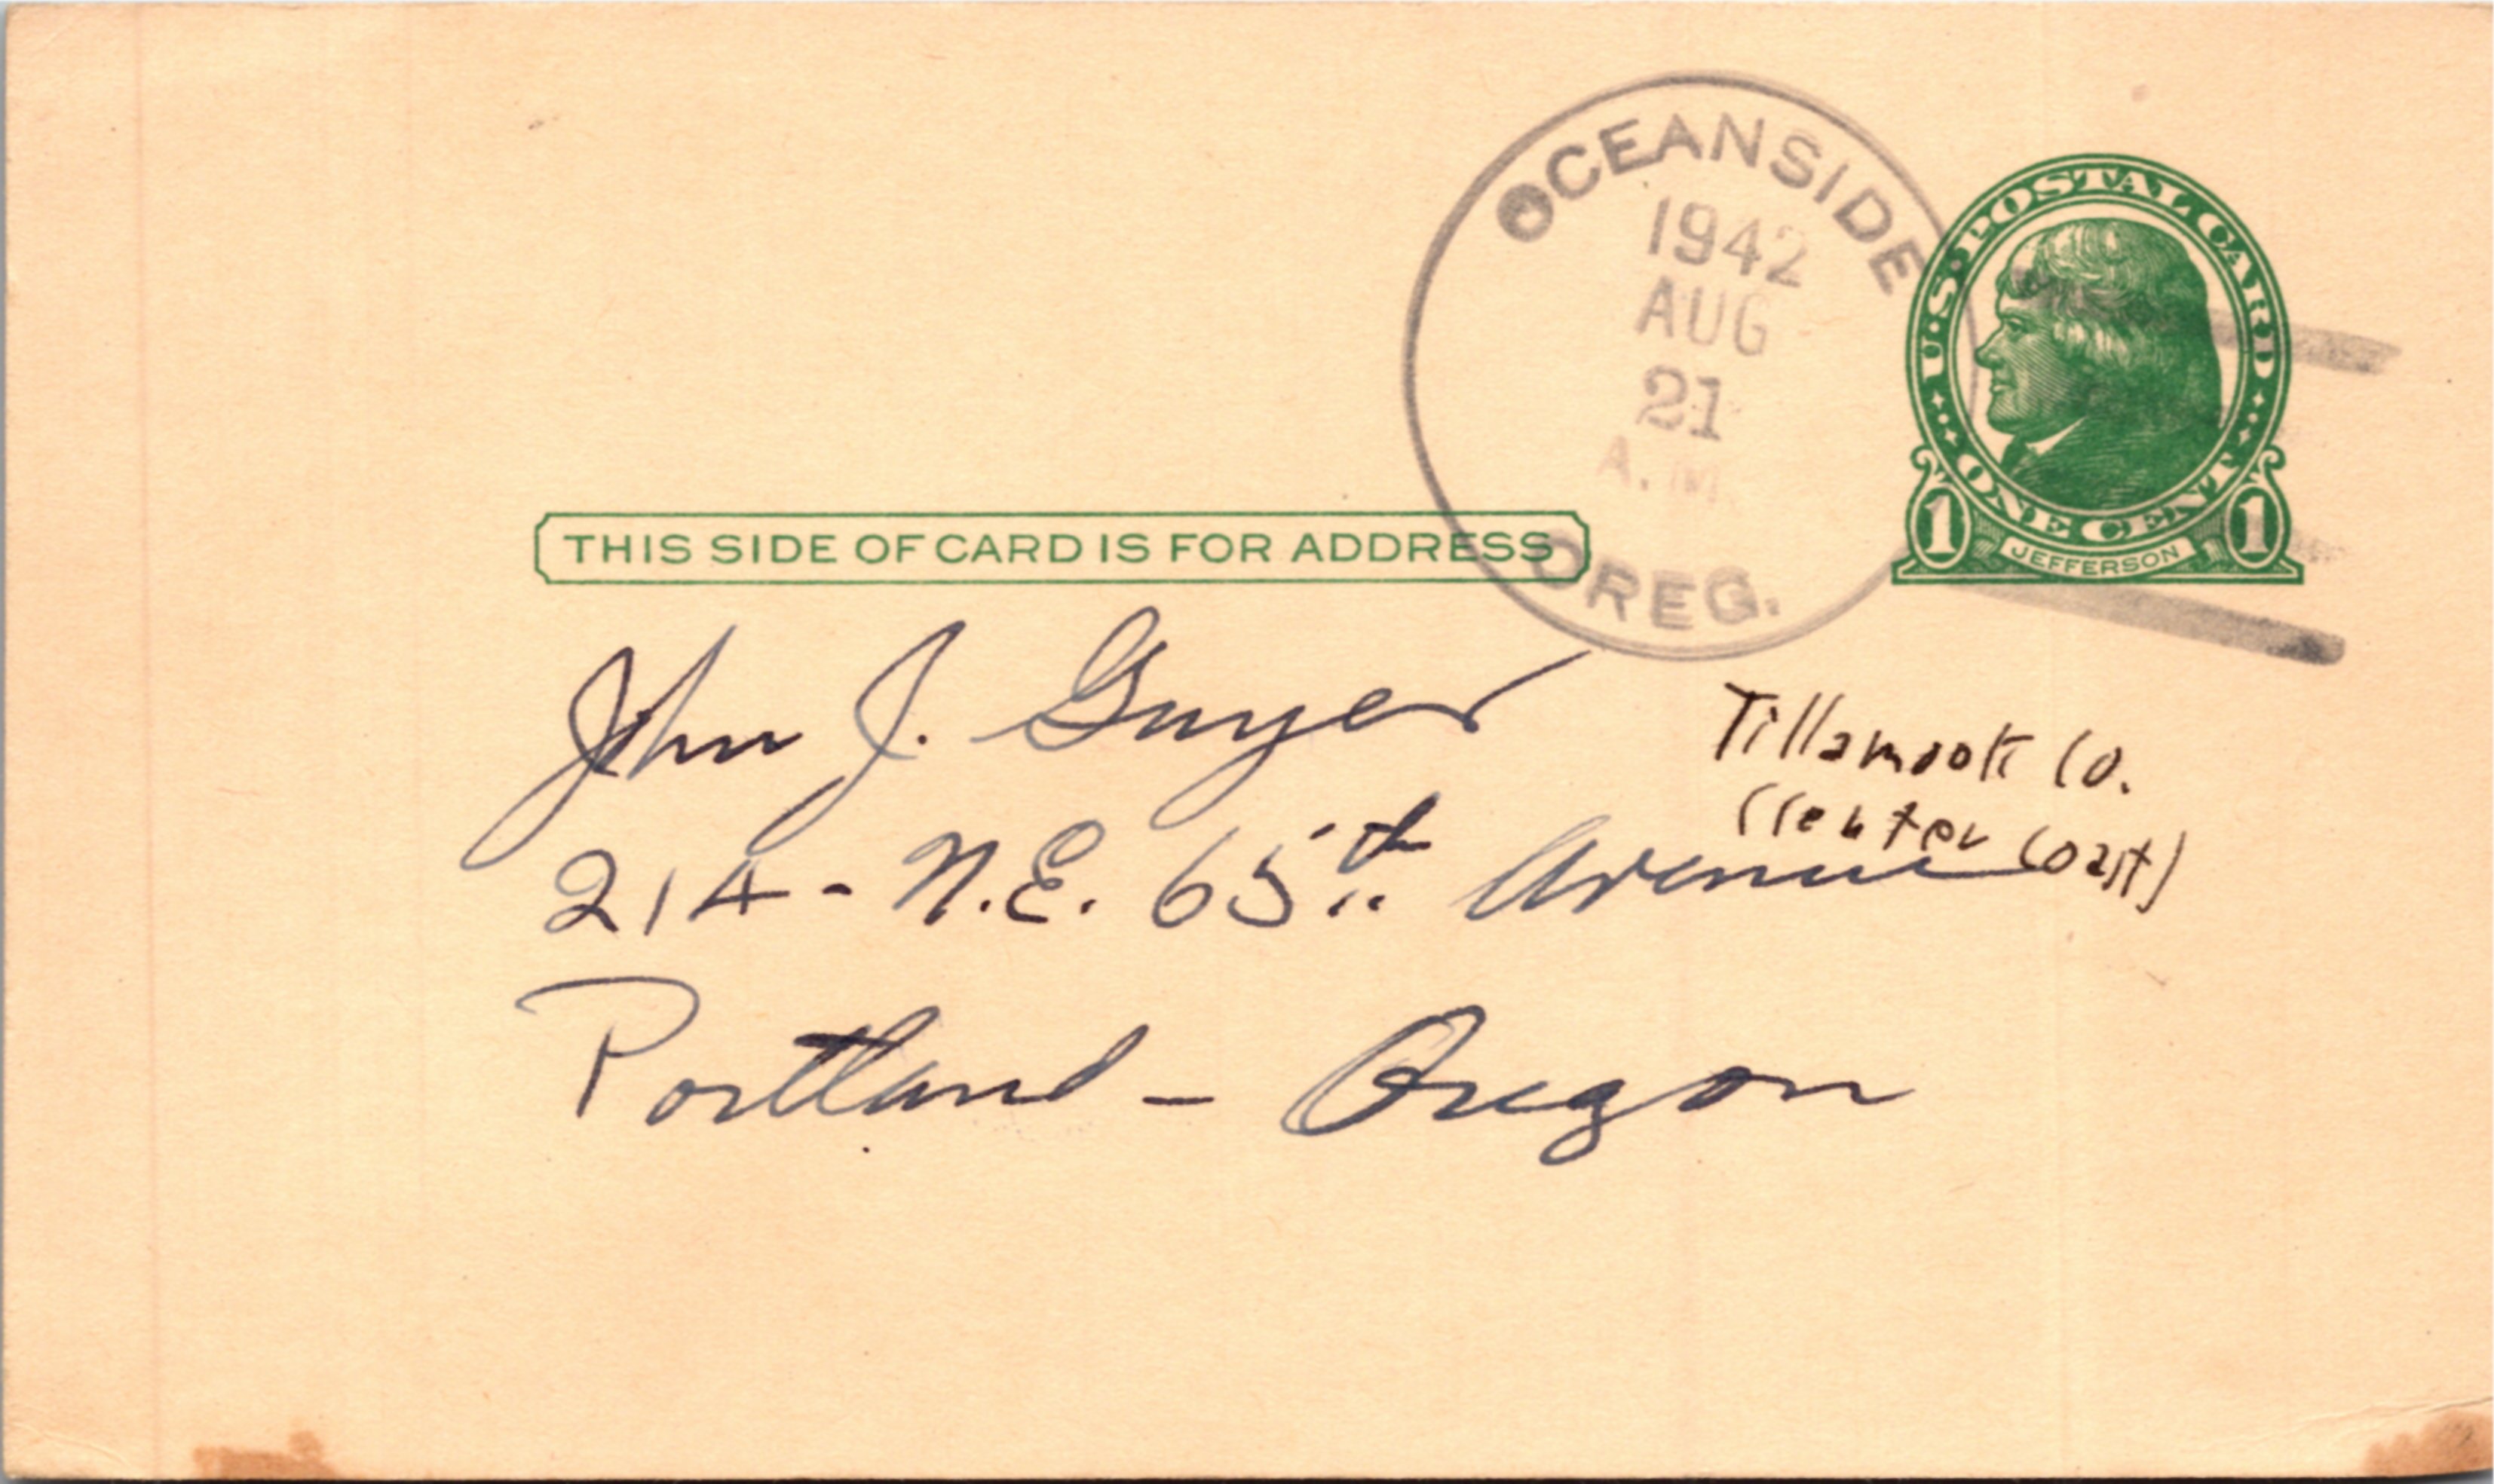 OCEANSIDE
1942
AUG
21
A.M.
OREG.
U.S. POSTAL CARD
ONE CENT
1 JEFFERSON 1
THIS SIDE OF CARD IS FOR ADDRESS
John J. Guyer
214 - N.E. 65th Avenue
Portland - Oregon
Tillamook Co.
(Center Coast)